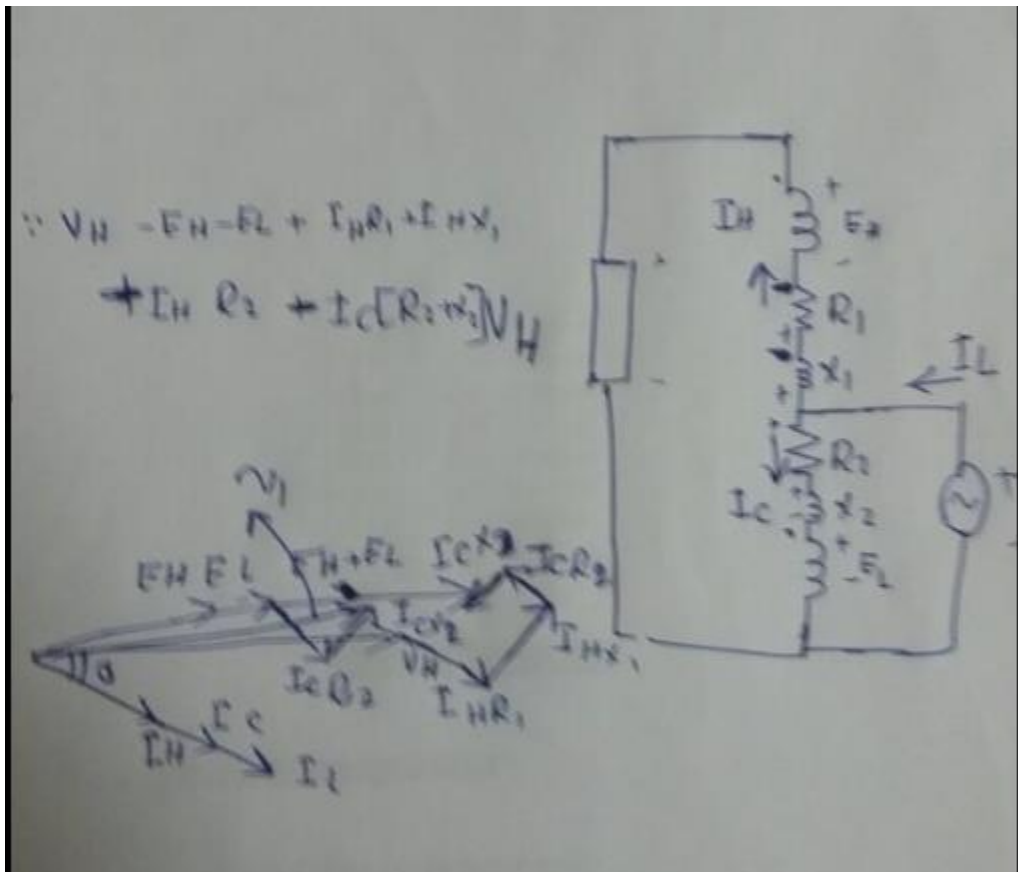 ∵ VH - EH - EL + IHR1 + IHX1
+ IH R2 + IC[R2+X2]VH
IH
+
EH
-
+
-
R1
+
X1
+
IL
R2
IC
X2
+
EL
-
+
-
V1
EH EL
EH+EL
ICX2
ICR2
ICX2
VH
ICR2
IHX1
IHR1
θ
IH
IC
IL